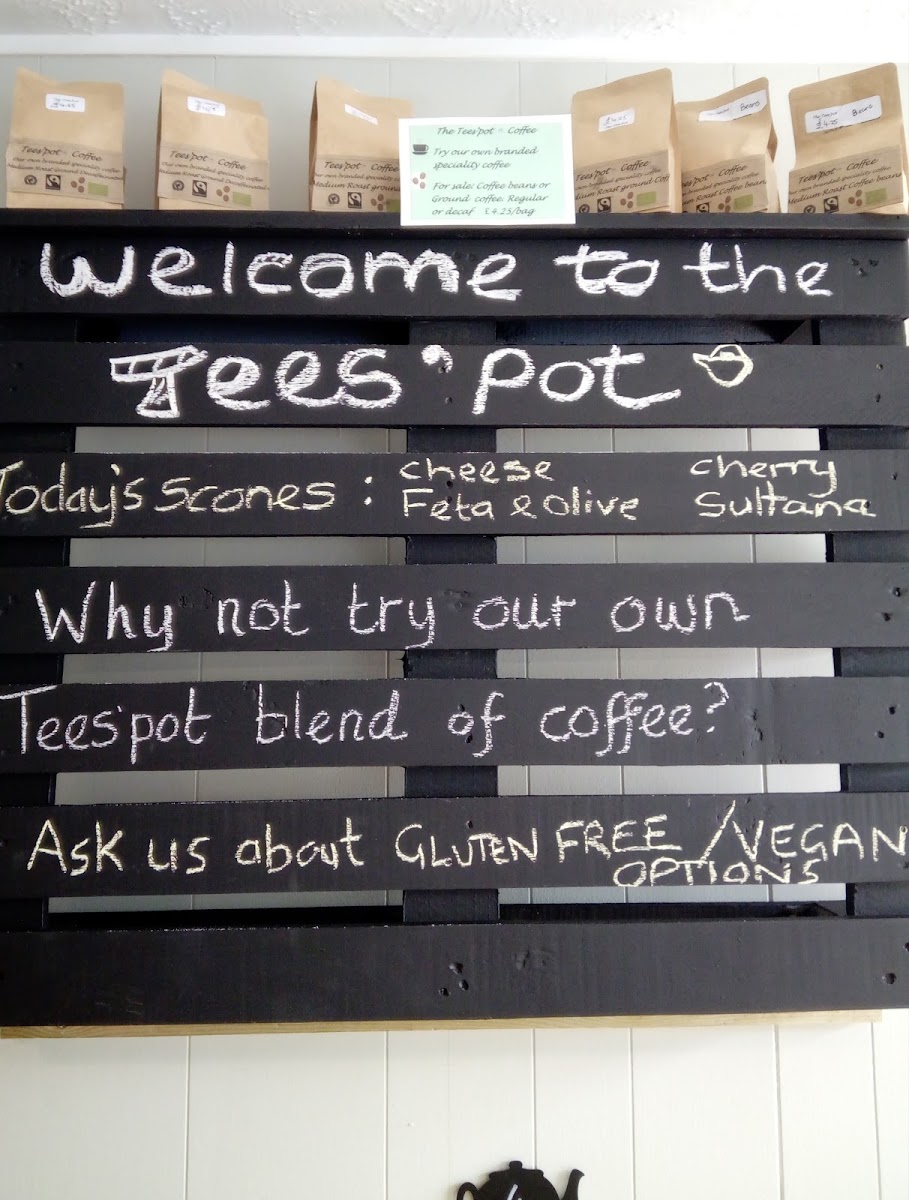 £4.25
Tees'pot - Coffee
Our own branded speciality coffee
Medium Roast ground Decaffeinated
£4.25
Tees'pot - Coffee
Our own branded speciality coffee
Medium Roast ground Decaffeinated
Tees'pot - Coffee
Our own branded speciality coffee
Medium Roast ground
The Tees'pot - Coffee
Try our own branded
speciality coffee
For sale: Coffee beans or
Ground coffee. Regular
or decaf £4.25/bag
£4.25
Tees'pot - Coffee
Our own branded speciality coffee
Medium Roast ground Coffee
Beans
Tees'pot - Coffee
Our own branded speciality coffee
Medium Roast Coffee beans
£4.25 Beans
Tees'pot - Coffee
Our own branded speciality coffee
Medium Roast Coffee beans
Welcome to the
Tees'pot
Today's Scones : Cheese Cherry
Feta & Olive Sultana
Why not try our own
Tees'pot blend of coffee?
Ask us about GLUTEN FREE / VEGAN
OPTIONS